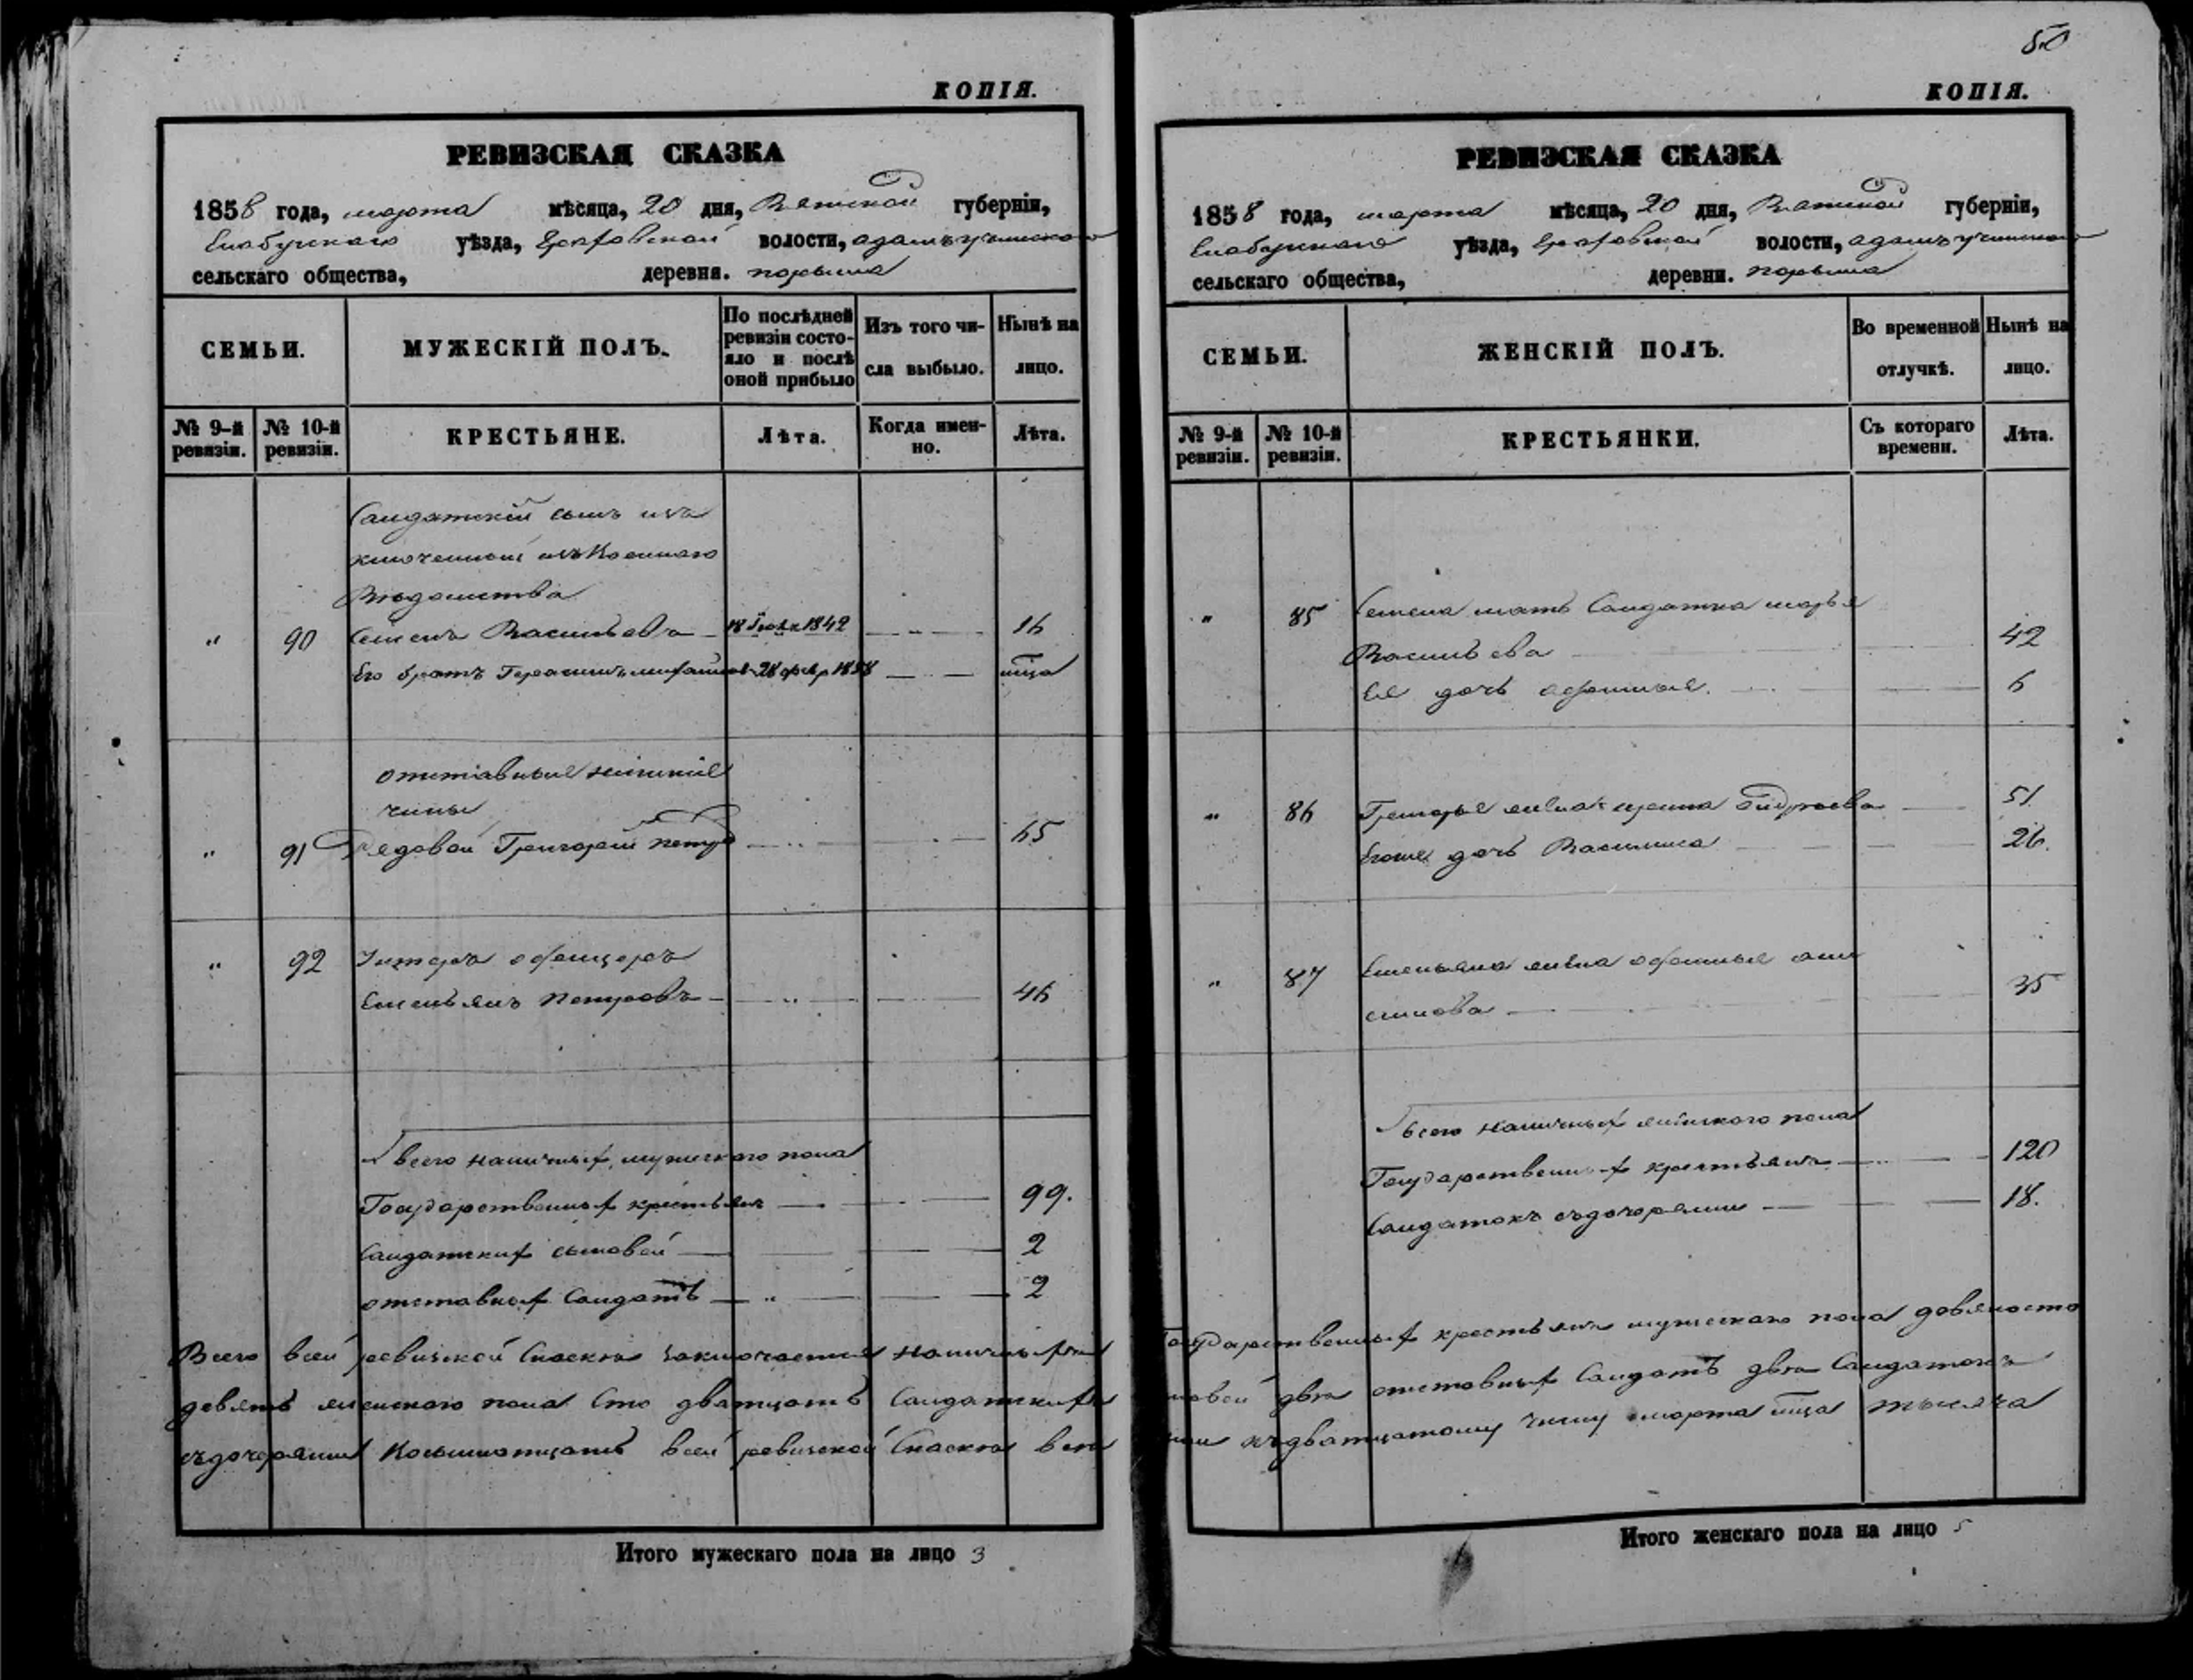 КОПІЯ.
РЕВИЗСКАЯ СКАЗКА
1858 года, марта мѣсяца, 20 дня, Вятской губерніи,
Елабужскаго уѣзда, Граховской волости,
сельскаго общества, деревня.
СЕМЬИ.
МУЖЕСКІЙ ПОЛЪ.
По послѣдней ревизіи состояло и послѣ оной прибыло
Изъ того числа выбыло.
Нынѣ на лицо.
№ 9-й ревизіи.
№ 10-й ревизіи.
КРЕСТЬЯНЕ.
Лѣта.
Когда именно.
Лѣта.
Салдатский сынъ
ключенный изъ Военнаго
Вѣдомства
" 90 Семенъ Васильевъ 18 Іюля 1842 16
Его братъ Герасимъ 28 февр 1858
отставные нижніе
чины
" 91 Рядовой Григорей Петро 65
" 92 Унтеръ офицеръ
Емельянъ Петровъ 46
всего наличныхъ мужескаго пола
Государственныхъ крестьянъ 99.
Салдатских сыновей 2
отставных Салдатъ 2
Всего всей ревиской Скаски заключается наличныхъ
девять женского пола Сто дватцать Салдатских
съдочерями Восымнатцать всей ревиской Скаски
Итого мужескаго пола на лицо 3
50
КОПІЯ.
РЕВИЗСКАЯ СКАЗКА
1858 года, марта мѣсяца, 20 дня, Вятской губерніи,
Елабужскаго уѣзда, Граховской волости,
сельскаго общества, деревни.
СЕМЬИ.
ЖЕНСКІЙ ПОЛЪ.
Во временной отлучкѣ.
Нынѣ на лицо.
№ 9-й ревизіи.
№ 10-й ревизіи.
КРЕСТЬЯНКИ.
Съ котораго времени.
Лѣта.
" 85 Семена мать Салдатка марья
Васильева 42
Ея дочь афимья. 6
" 86 Григорья жена 51.
Егоже дочь Василиса 26.
" 87 Емельяна жена офимья ани
симова 35
всего наличных женского пола
Государственных крестьянъ 120
Салдатокъ съдочерями 18.
Государственных крестьянъ мужескаго пола девяносто
новей два отставных Салдатъ два Салдатокъ
къдватцатому числу марта тысяча
Итого женскаго пола на лицо 5